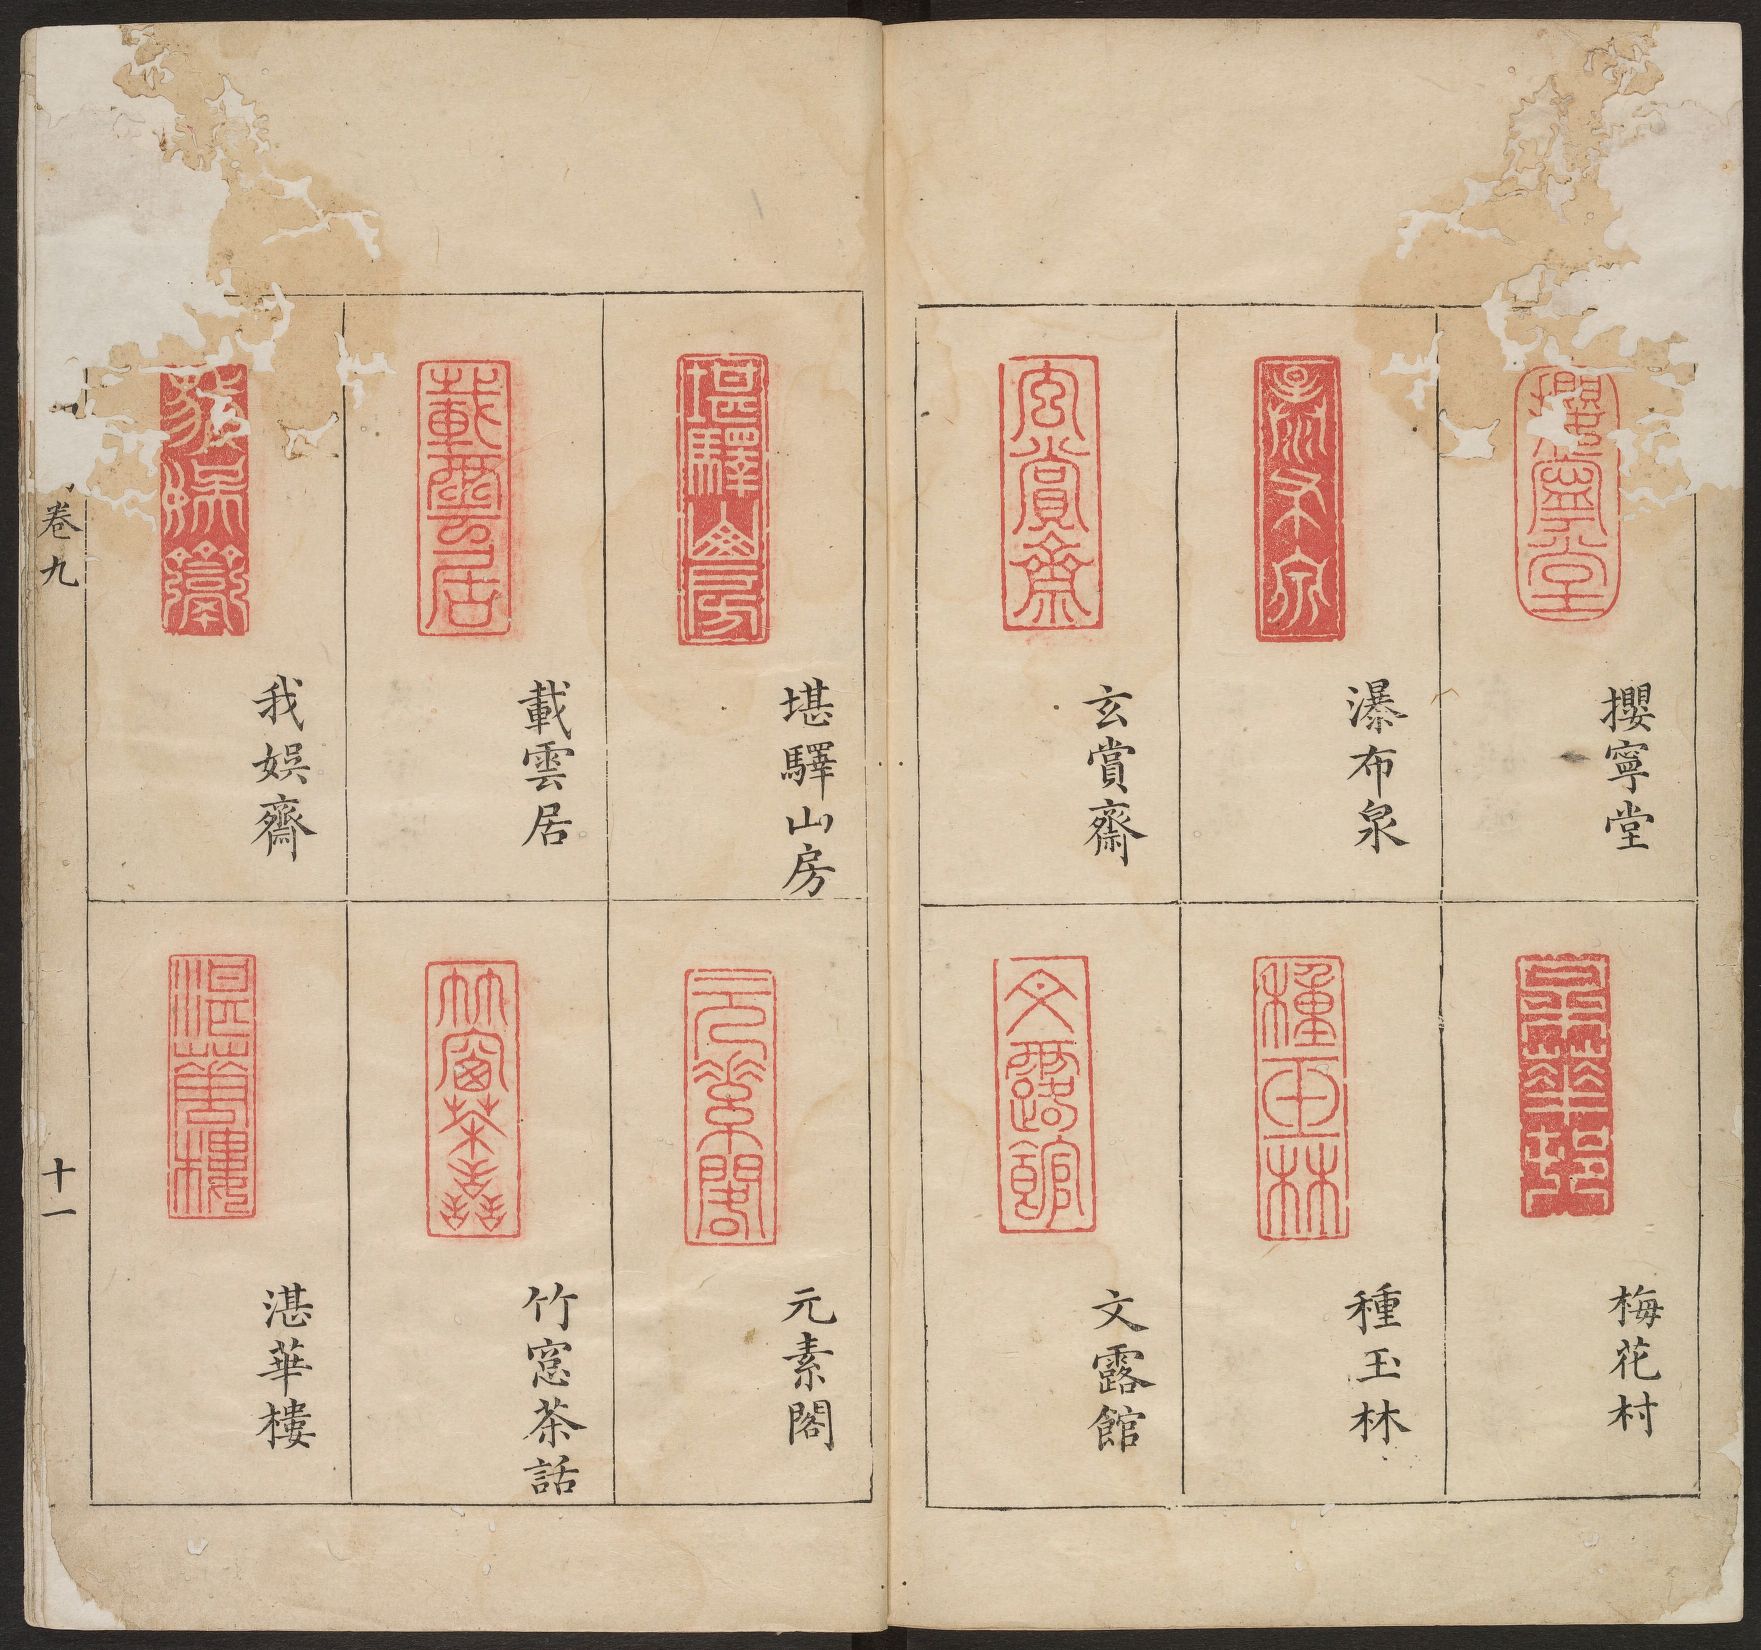 攖寧堂
瀑布泉
玄賞齋
梅花村
種玉林
文露館
堪驛山房
載雲居
我娯齋
元素閣
竹窓茶話
湛華樓
卷九
十一